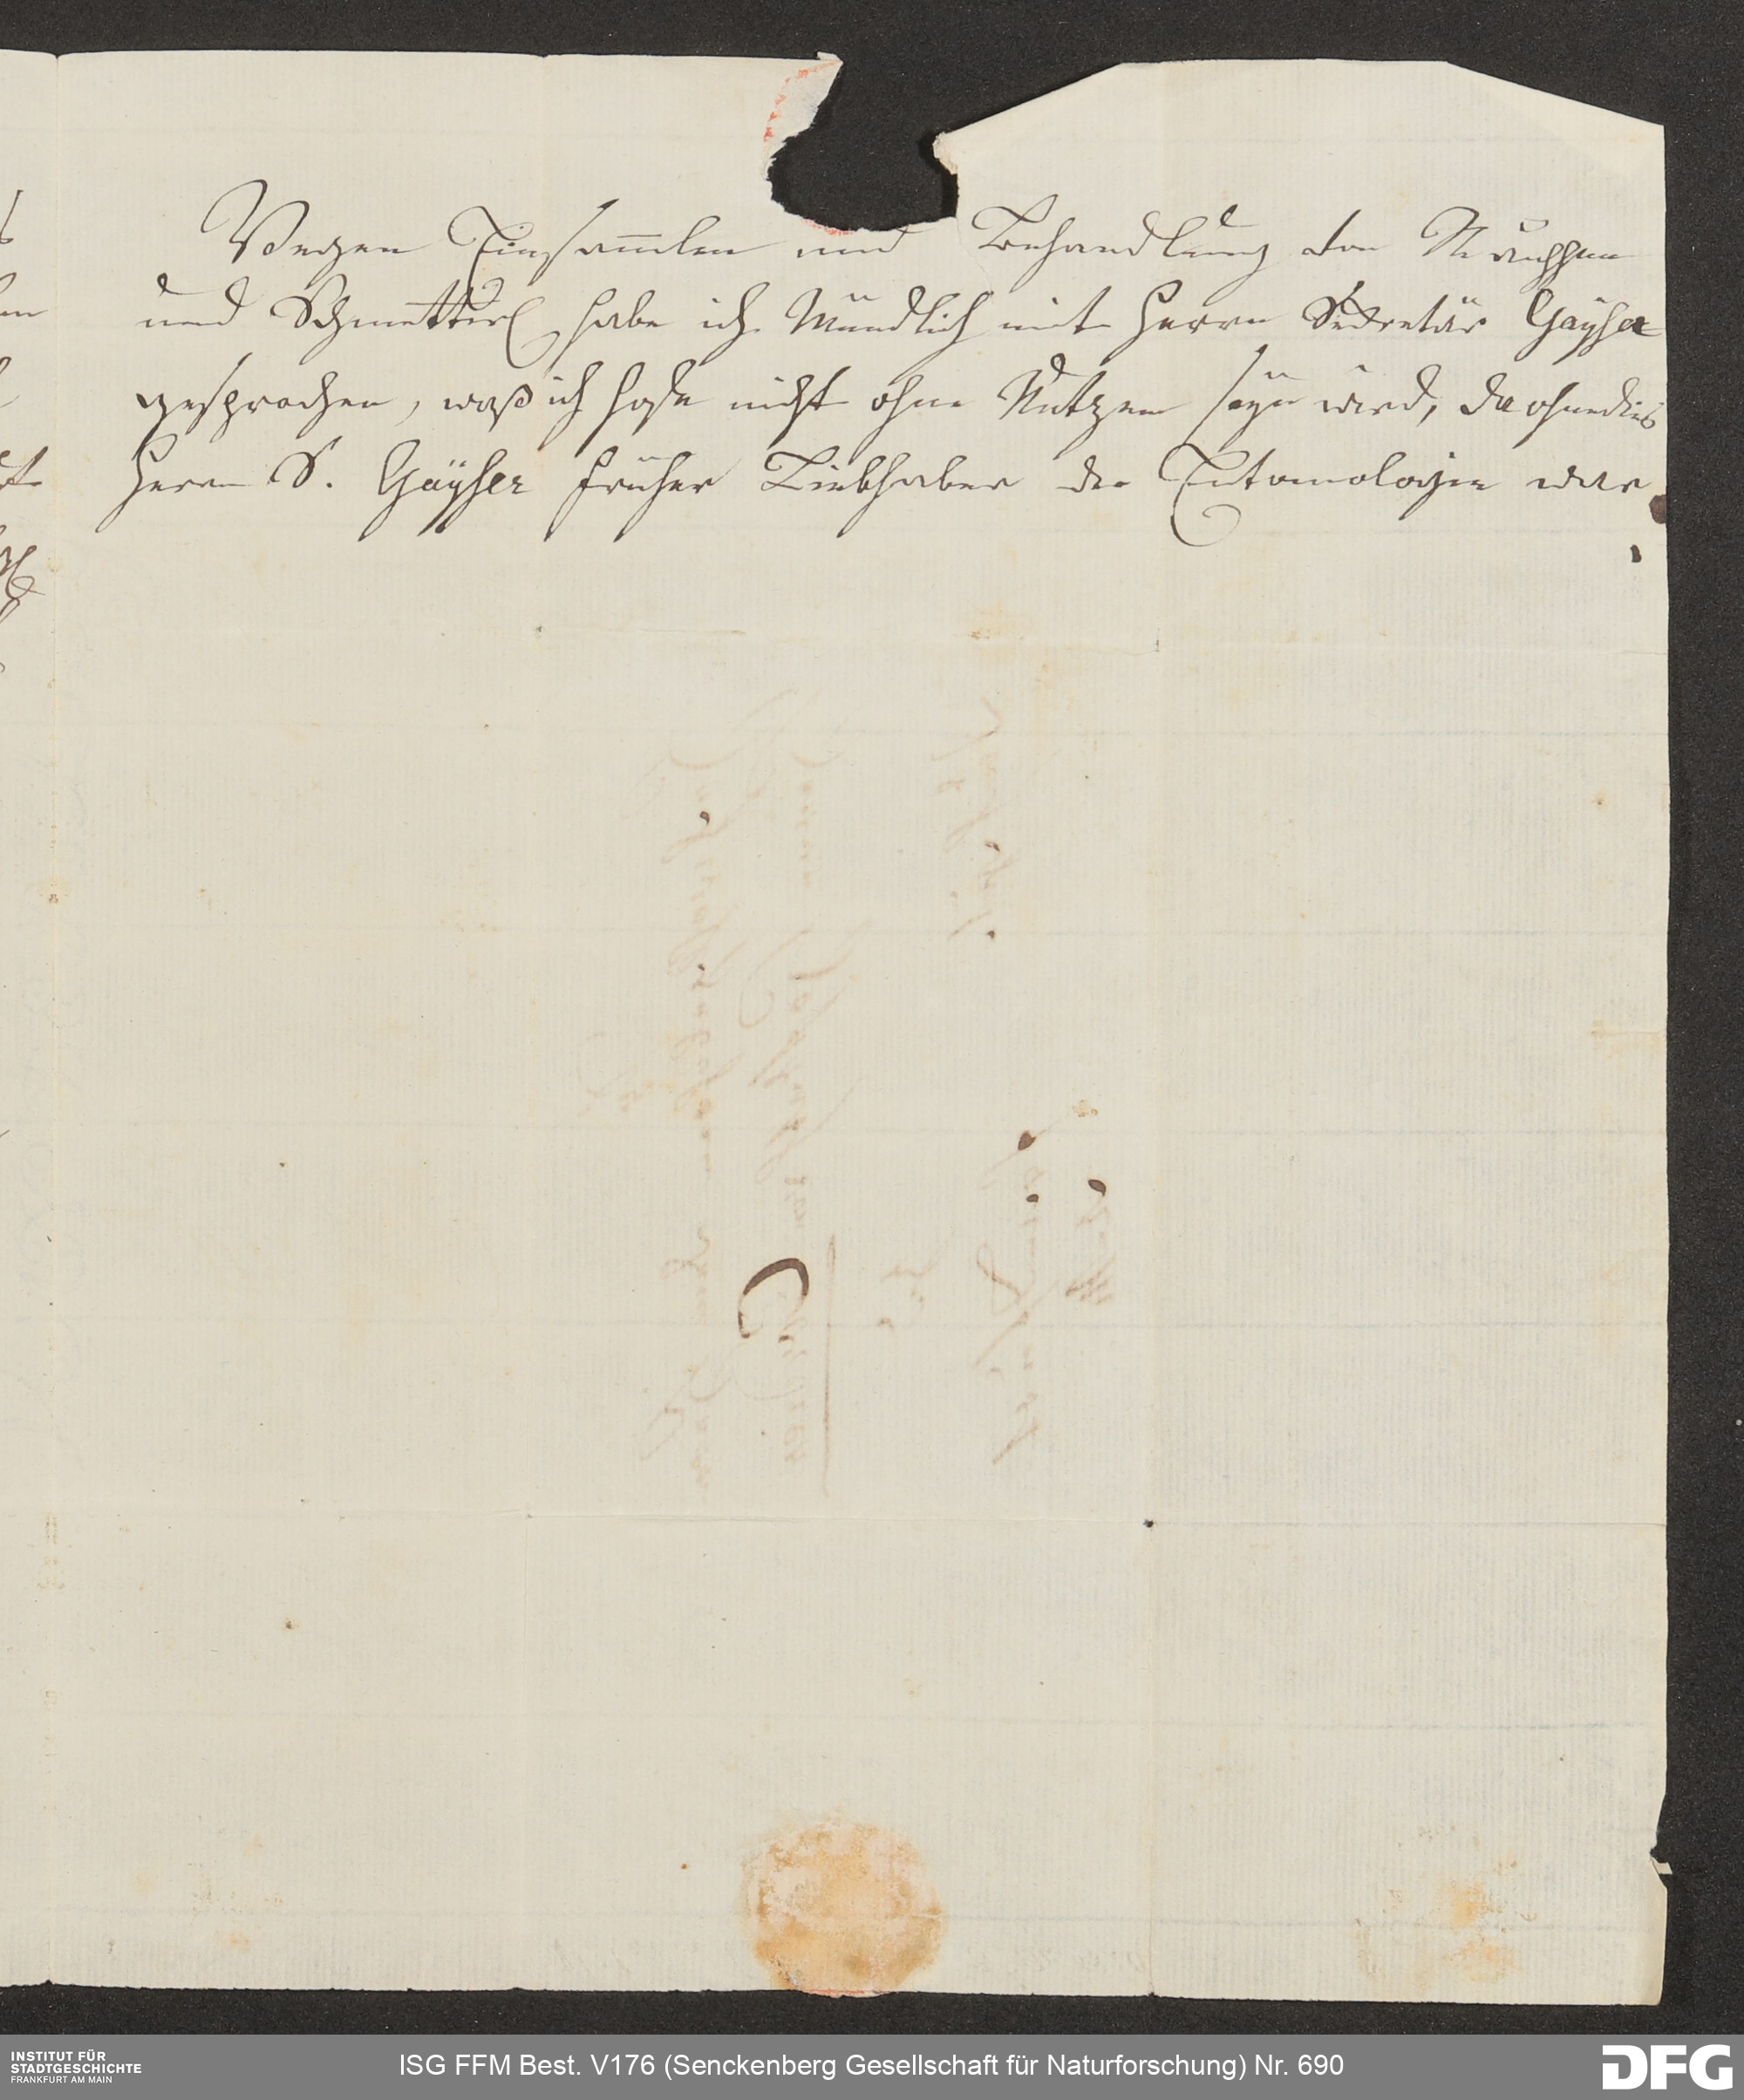 Wegen Einsam̅len und Behandlung der Rauppen
und Schmetterl habe ich Mündlich mit Herrn Sekretär Gayser
gesprochen, waß ich hofe nicht ohne Nutzen seyn wird, da ohnedies
Herr S. Gayser früher Liebhaber der Entomologie war
INSTITUT FÜR
STADTGESCHICHTE
FRANKFURT AM MAIN
ISG FFM Best. V176 (Senckenberg Gesellschaft für Naturforschung) Nr. 690
DFG